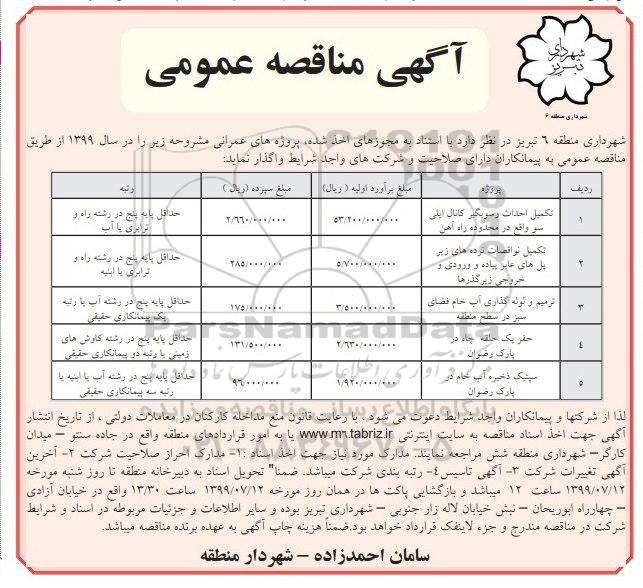 آگهی مناقصه عمومی
شهرداری تبریز
شهرداری منطقه ۶
شهرداری منطقه ۶ تبریز در نظر دارد با استناد به مجوزهای اخذ شده، پروژه های عمرانی مشروحه زیر را در سال ۱۳۹۹ از طریق
مناقصه عمومی به پیمانکاران دارای صلاحیت و شرکت های واجد شرایط واگذار نماید:
ردیف پروژه مبلغ برآورد اولیه ( ریال) مبلغ سپرده (ریال ) رتبه
۱ تکمیل احداث رسوبگیر کانال ایلی ۵۳/۲۰۰/۰۰۰/۰۰۰ ۲/۶۶۰/۰۰۰/۰۰۰ حداقل پایه پنج در رشته راه و
سو واقع در محدوده راه آهن ترابری یا آب
۲ تکمیل نواقصات نرده های زیر ۵/۷۰۰/۰۰۰/۰۰۰ ۲۸۵/۰۰۰/۰۰۰ حداقل پایه پنج در رشته راه و
پل های عابر پیاده و ورودی و ترابری یا ابنیه
خروجی زیرگذرها
۳ ترمیم و لوله گذاری آب خام فضای ۳/۵۰۰/۰۰۰/۰۰۰ ۱۷۵/۰۰۰/۰۰۰ حداقل پایه پنج در رشته آب یا رتبه
سبز در سطح منطقه یک پیمانکاری حقیقی
۴ حفر یک حلقه چاه در ۲/۶۳۰/۰۰۰/۰۰۰ ۱۳۱/۵۰۰/۰۰۰ حداقل پایه پنج در رشته کاوش های
پارک رضوان زمینی یا رتبه دو پیمانکاری حقیقی
۵ سپتیک ذخیره آب خام در ۱/۹۲۰/۰۰۰/۰۰۰ ۹۶/۰۰۰/۰۰۰ حداقل پایه پنج در رشته آب یا ابنیه یا
پارک رضوان رتبه سه پیمانکاری حقیقی
ParsNamadData
لذا از شرکتها و پیمانکاران واجد شرایط دعوت می شود ، با رعایت قانون منع مداخله کارکنان در معاملات دولتی ، از تاریخ انتشار
آگهی جهت اخذ اسناد مناقصه به سایت اینترنتی www.mn.tabriz.ir یا به امور قراردادهای منطقه واقع در جاده سنتو – میدان
کارگر– شهرداری منطقه شش مراجعه نمایند. مدارک مورد نیاز جهت اخذ اسناد :۱- مدارک احراز صلاحیت شرکت ۲- آخرین
آگهی تغییرات شرکت ۳- آگهی تاسیس۴- رتبه بندی شرکت میباشد. ضمنا" تحویل اسناد به دبیرخانه منطقه تا روز شنبه مورخه
۱۳۹۹/۰۷/۱۲ ساعت ۱۲ میباشد و بازگشایی پاکت ها در همان روز مورخه ۱۳۹۹/۰۷/۱۲ ساعت ۱۳/۳۰ واقع در خیابان آزادی
– چهارراه ابوریحان – نبش خیابان لاله زار جنوبی – شهرداری تبریز بوده و سایر اطلاعات و جزئیات مربوطه در اسناد و شرایط
شرکت در مناقصه مندرج و جزء لاینفک قرارداد خواهد بود.ضمناً هزینه چاپ آگهی به عهده برنده مناقصه میباشد.
سامان احمدزاده – شهردار منطقه